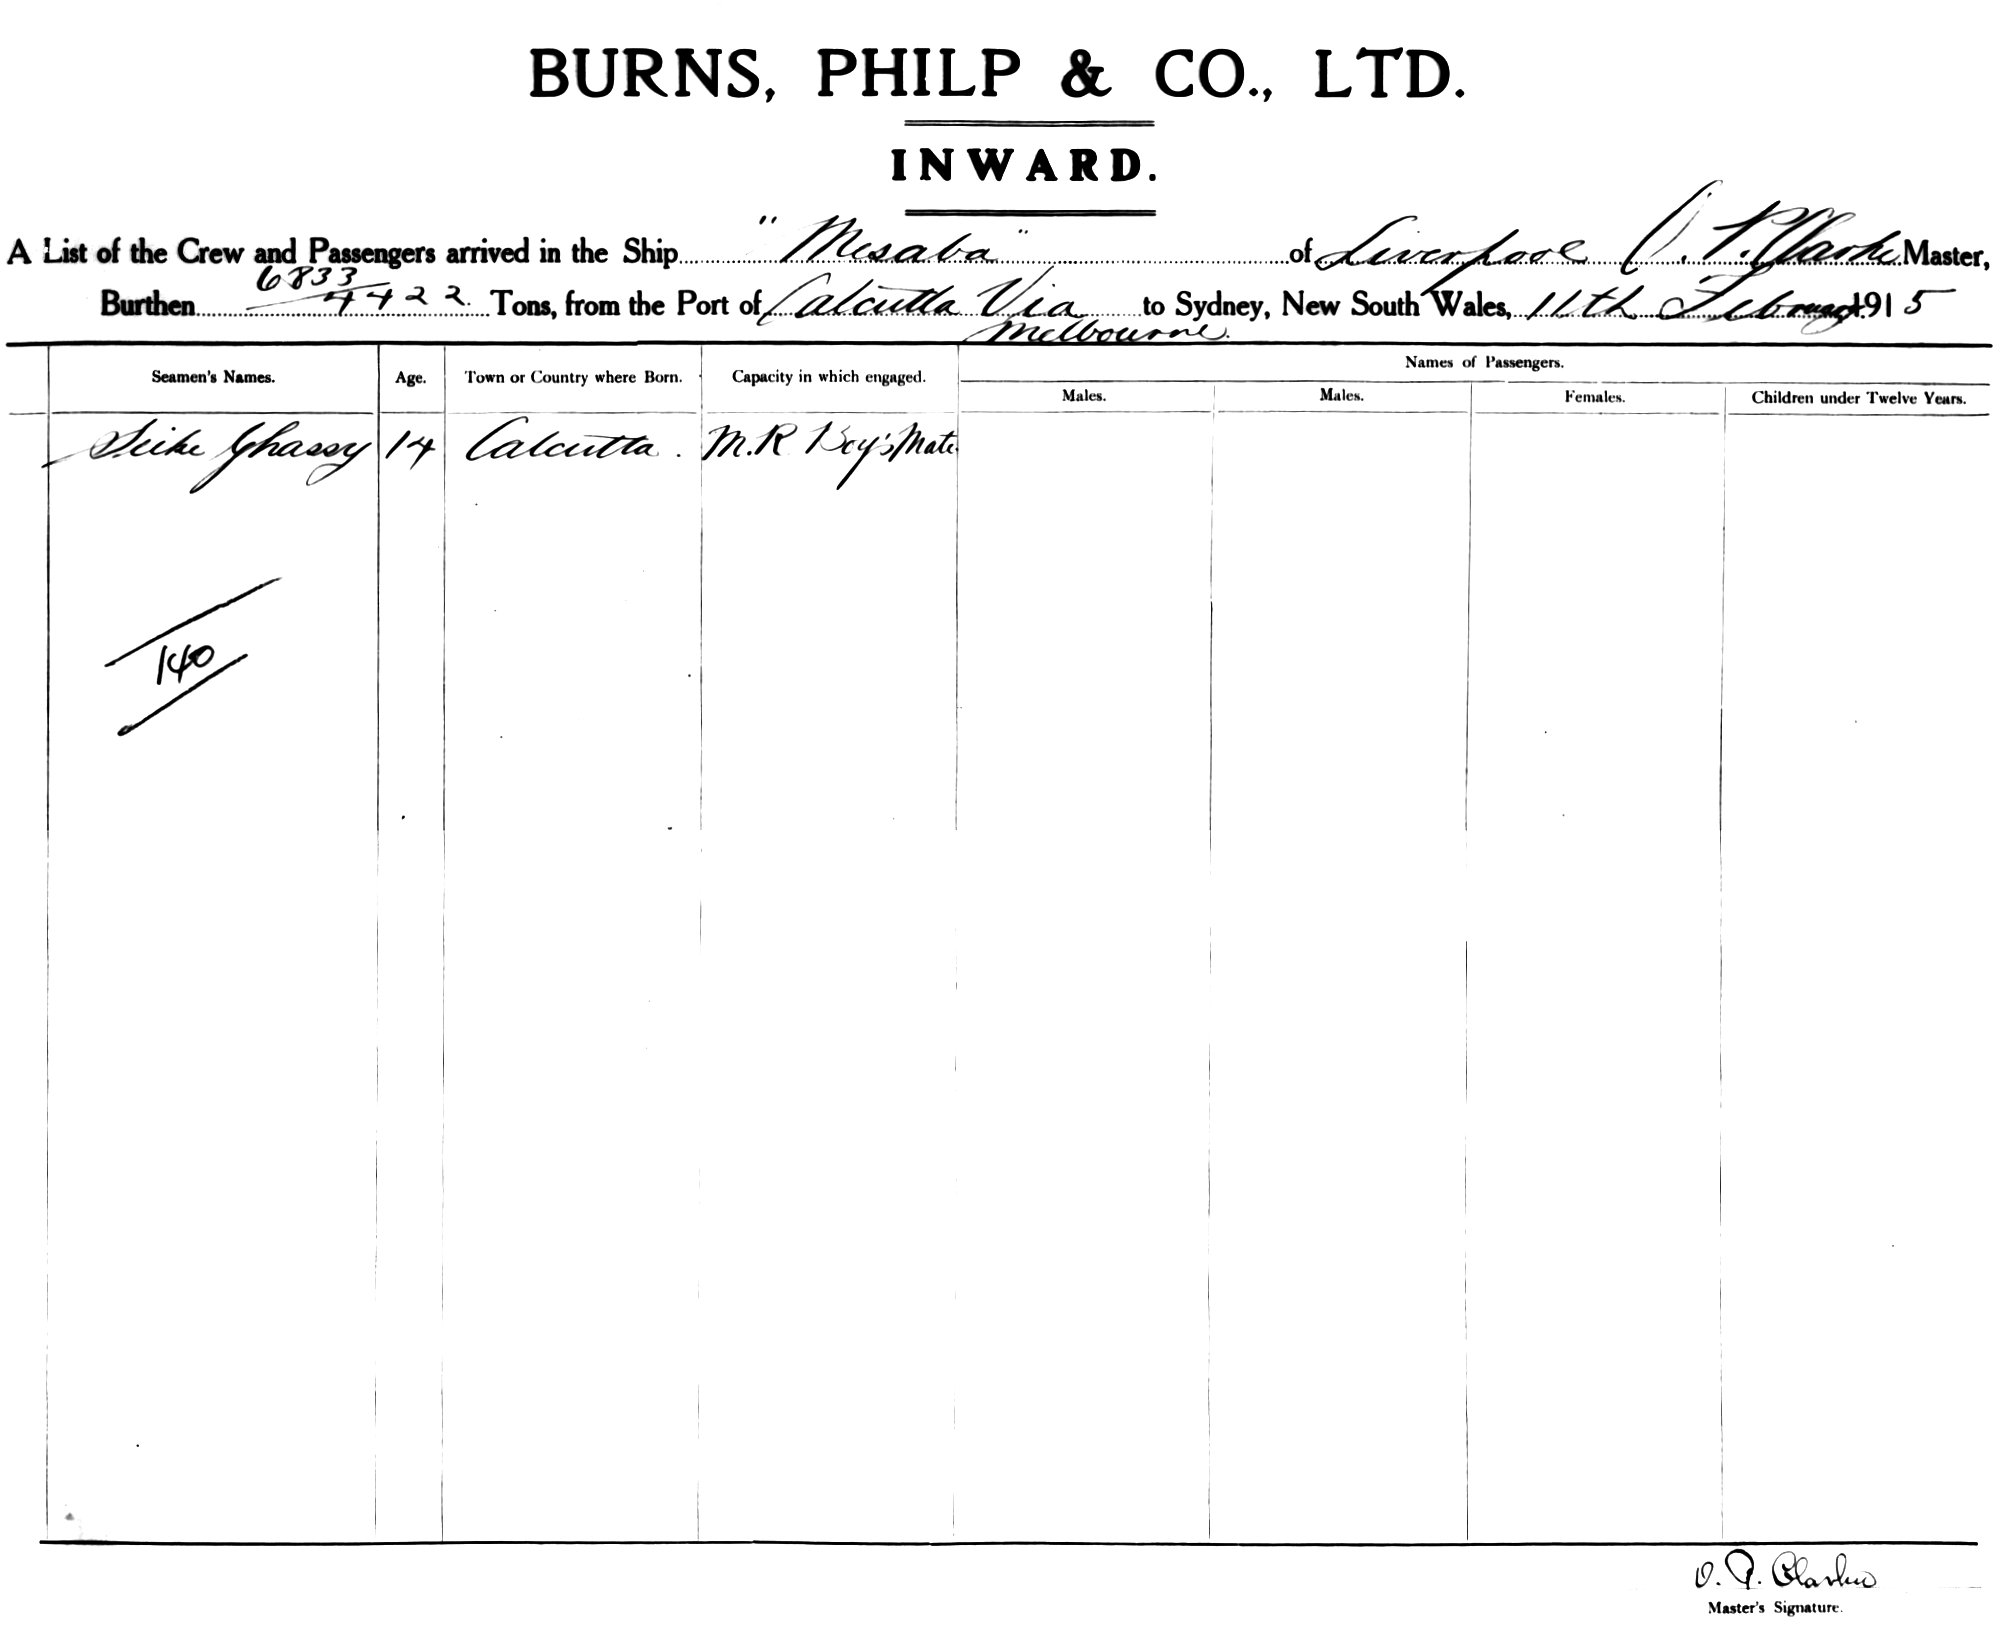 BURNS, PHILP & CO., LTD.
INWARD.
A List of the Crew and Passengers arrived in the Ship "Mesaba" of Liverpool O. P. Clarke Master,
Burthen 6833/4422 Tons, from the Port of Calcutta Via Melbourne to Sydney, New South Wales, 11th February 1915
Names of Passengers.
Seamen's Names. Age. Town or Country where Born. Capacity in which engaged. Males. Males. Females. Children under Twelve Years.
14 Calcutta. M.R Boy's Mate
140
O. P. Clarke
Master's Signature.